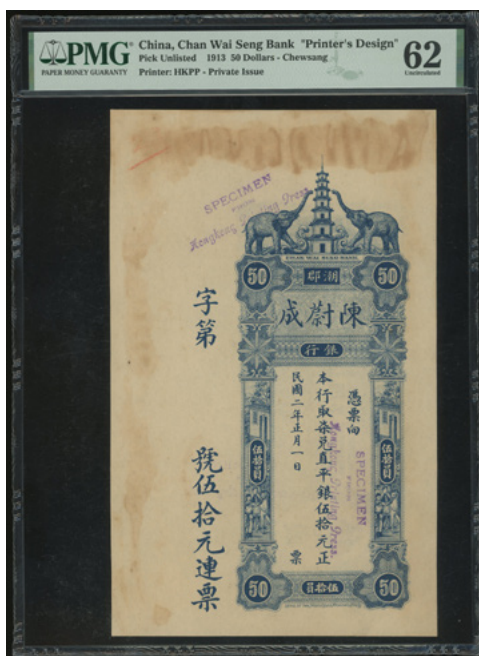 PMG
PAPER MONEY GUARANTY
China, Chan Wai Seng Bank "Printer's Design"
Pick Unlisted 1913 50 Dollars - Chewsang
Printer: HKPP - Private Issue
62
Uncirculated
SPECIMEN
Hongkong Printing Press
CHAN WAI SENG BANK
50
潮郡
50
陳蔚成
銀行
憑票向
本行取柒兌直平銀伍拾元正
民國二年正月一日
票
伍拾員
伍拾員
SPECIMEN
Hongkong Printing Press.
字第
號伍拾元連票
50
伍拾員
50